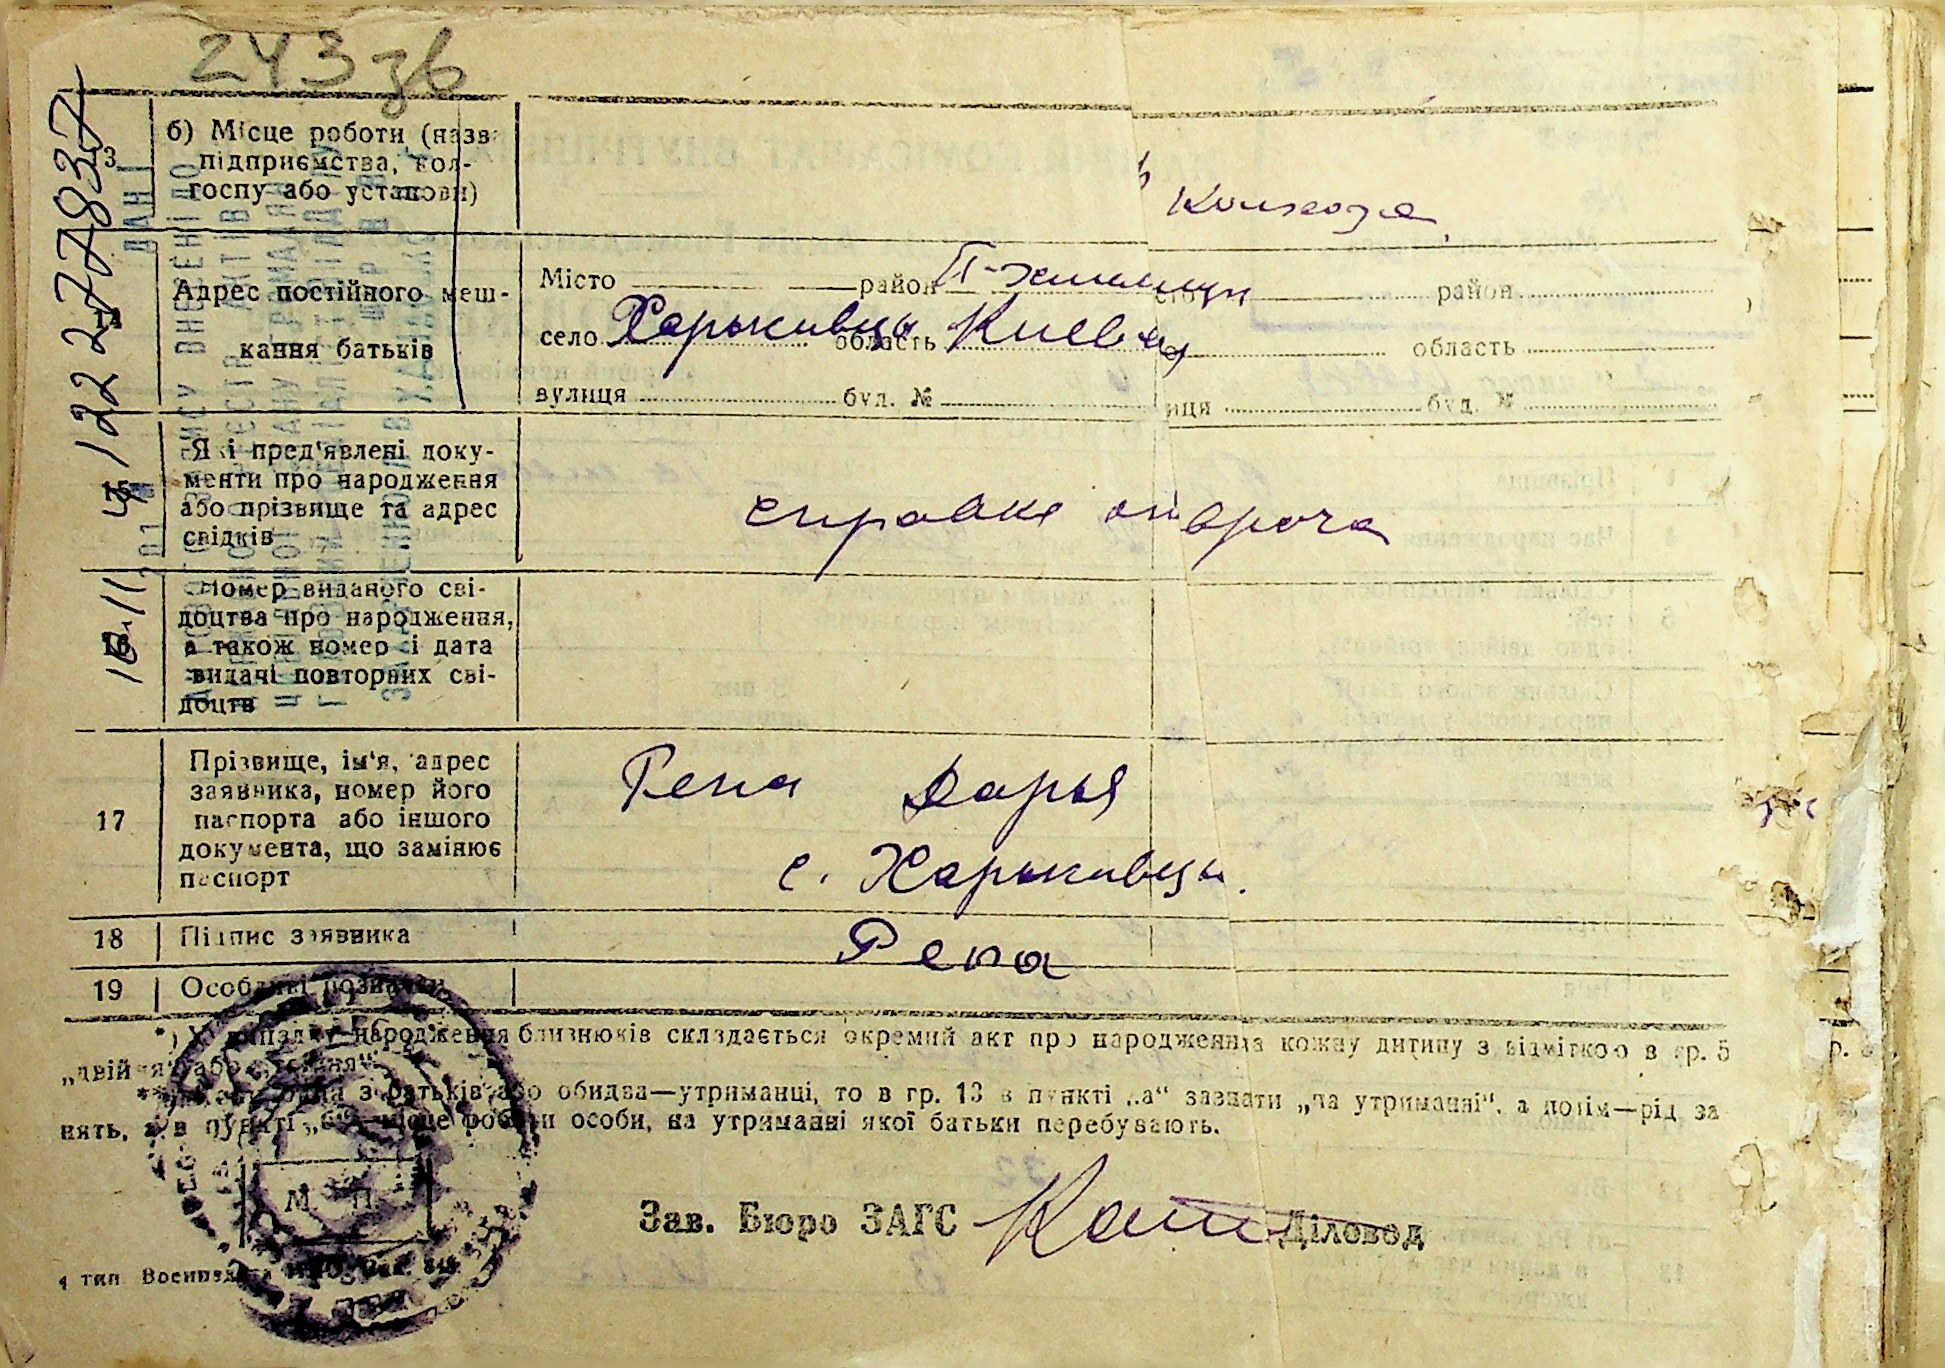 243 зв
б) Місце роботи (назва
підприємства, кол-
госпу або установи)
колхоза
Адрес постійного меш-
кання батьків
Місто район П-Хмельниц район
село Харькивцы область Киевск область
вулиця буд. № иця буд. №
15
Які пред'явлені доку-
менти про народження
або прізвище та адрес
свідків
справка от врача
16
Номер виданого сві-
доцтва про народження,
а також номер і дата
видачі повторних сві-
доцтв
17
Прізвище, ім'я, адрес
заявника, номер його
паспорта або іншого
документа, що замінює
паспорт
Репа Дарья
с. Харькивцы.
18 Підпис заявника
Репа
19 Особливі позначки
*) У випадку народження близнюків складається окремий акт про народження на кожну дитину з відміткою в гр. 5
„двійня" або
з батьків або обидва—утриманці, то в гр. 13 в пункті „а" зазнати „на утриманні", а потім—рід за
нять, а в пункті „б"—місце роботи особи, на утриманні якої батьки перебувають.
М. П.
Зав. Бюро ЗАГС Діловод
4 тип
122 277837